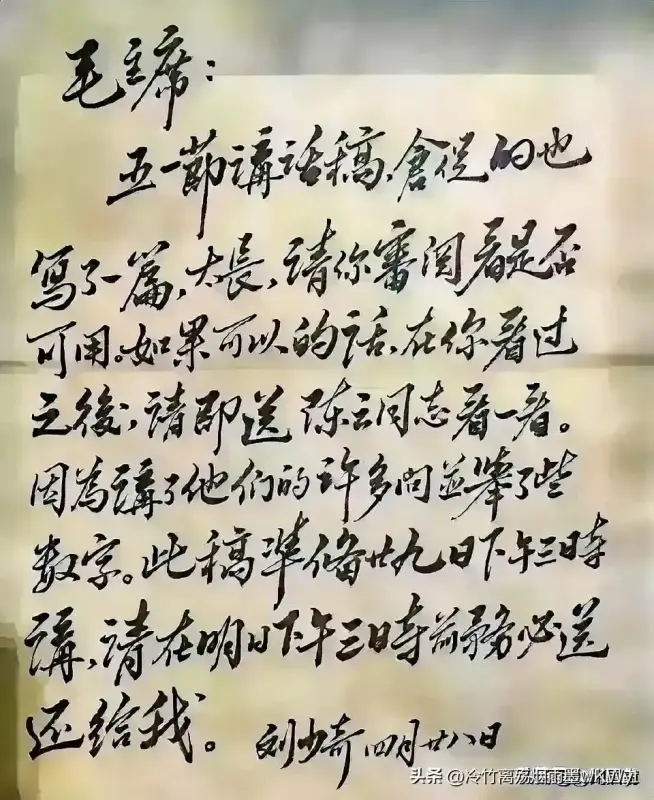 毛主席：
五一節講話稿，倉促的也
寫了一篇，太長，請你審閱看是否
可用。如果可以的話，在你看过
之後，請即送陈云同志看一看。
因為講了他們的许多问並舉了些
数字。此稿準備廿九日下午三時
講，請在明日下午三時前務必送
还给我。刘少奇 四月廿八日
头条 @冷竹离